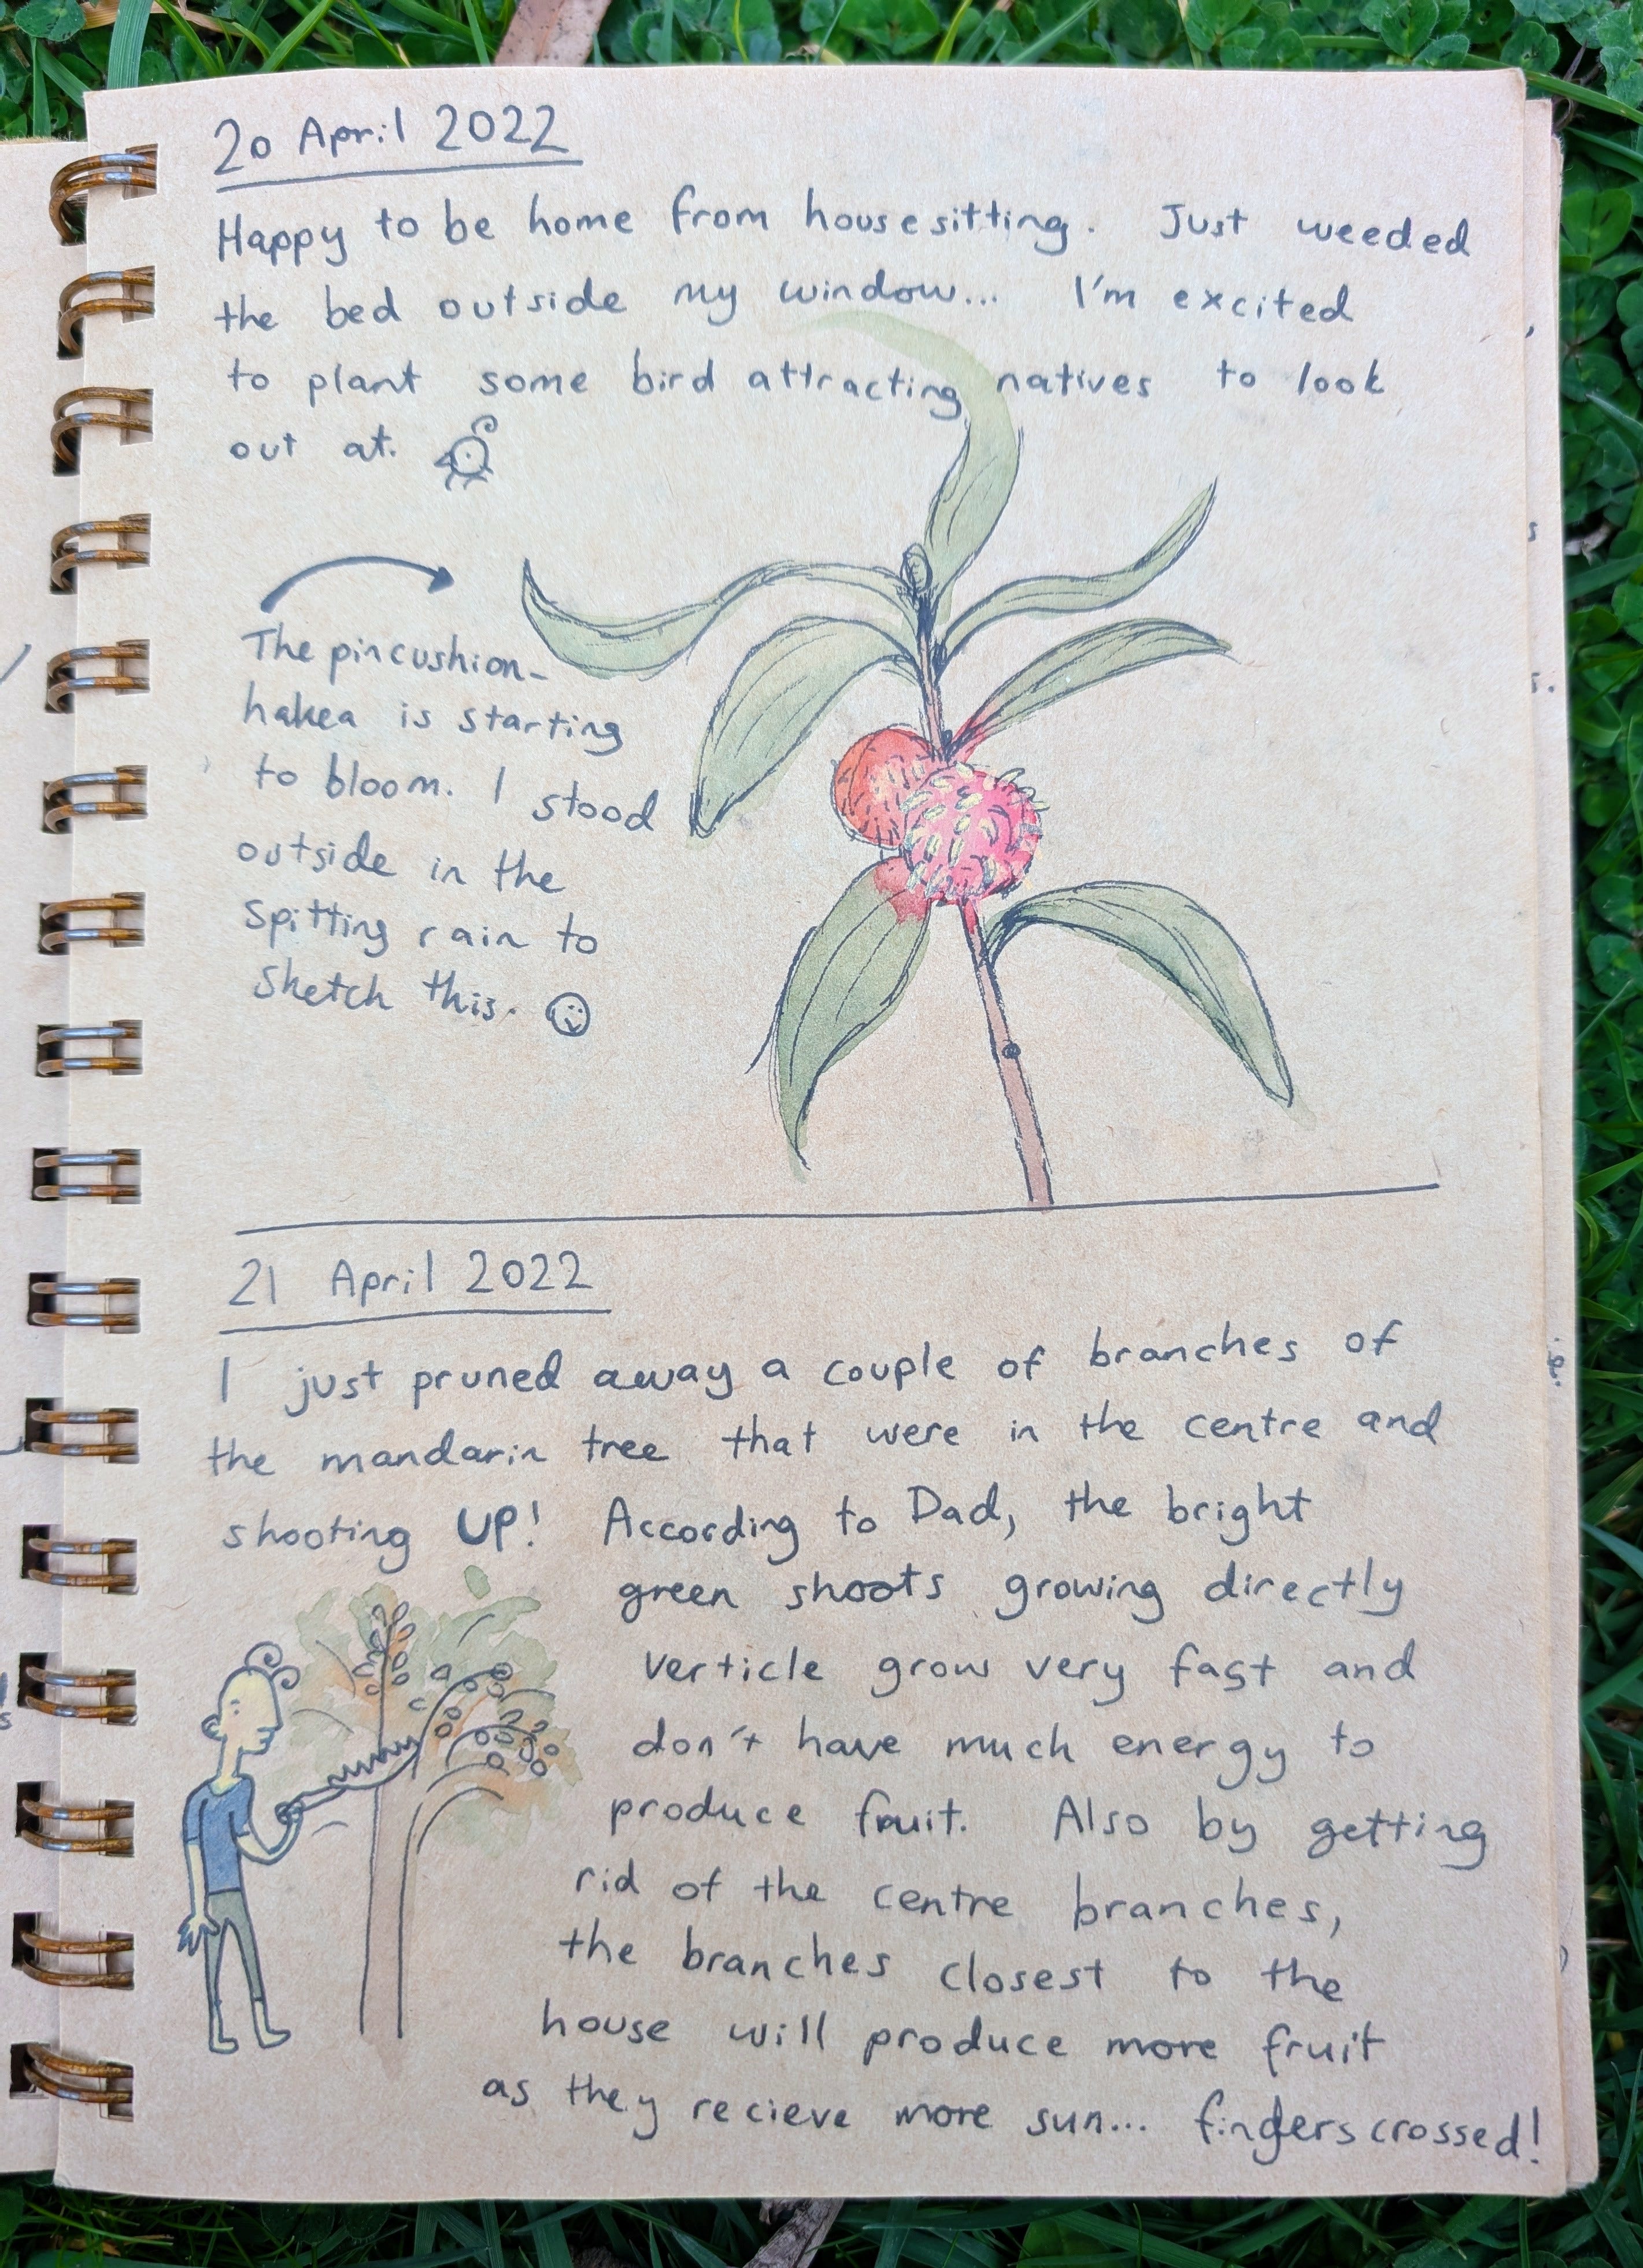 20 April 2022
Happy to be home from housesitting. Just weeded
the bed outside my window... I'm excited
to plant some bird attracting natives to look
out at.
The pincushion-
hakea is starting
to bloom. I stood
outside in the
spitting rain to
sketch this.
21 April 2022
I just pruned away a couple of branches of
the mandarin tree that were in the centre and
shooting UP! According to Dad, the bright
green shoots growing directly
verticle grow very fast and
don't have much energy to
produce fruit. Also by getting
rid of the centre branches,
the branches closest to the
house will produce more fruit
as they recieve more sun... fingers crossed!